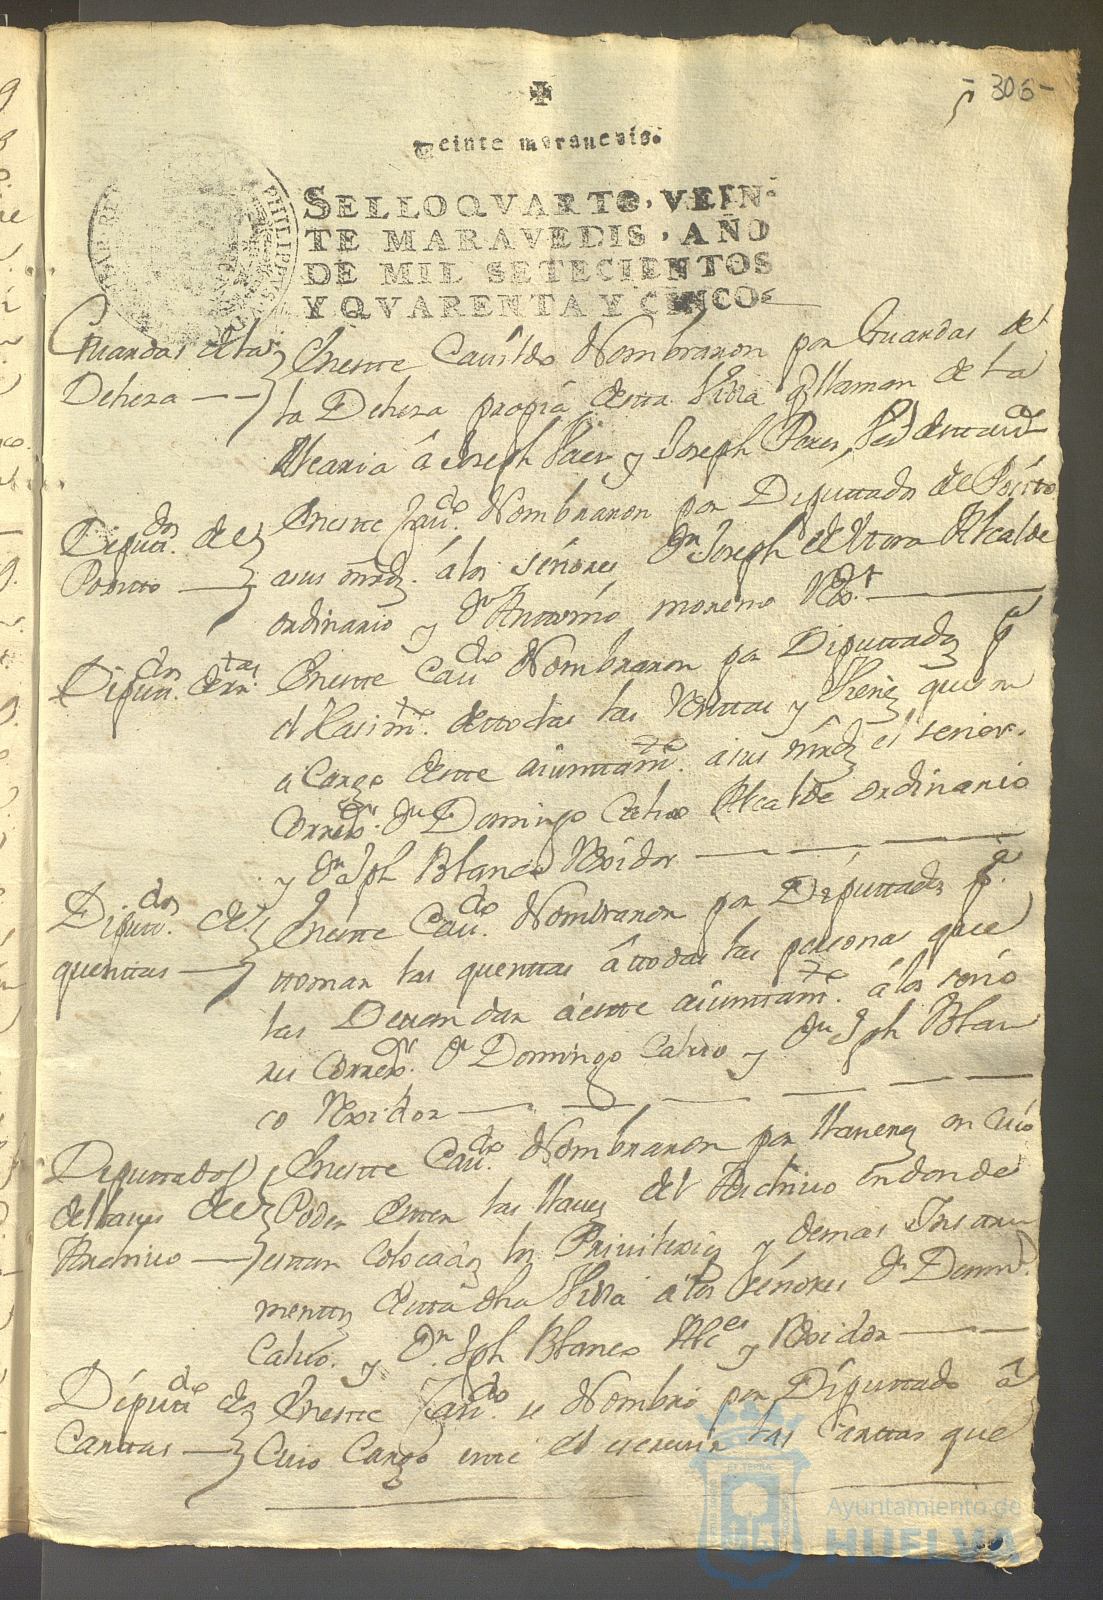 - 306 -
Veinte maravedis.
SELLO QVARTO, VEIN-
TE MARAVEDIS, AÑO
DE MIL SETECIENTOS
Y QVARENTA Y CINCO.
PHILIPPUS
Guardas de la
Dehesa
Eneste Cauildo Nombraron por Guardas de
la Dehesa propia desta Villa q llaman de la
Alcaria â Joseph y Joseph Peres
Diputdos. de
Posito
Eneste Caudo. Nombraron por Diputtados de Posito
asus mrds. â los señores Dn Joseph de Mora Alcalde
ordinario y Dn Antonio moreno Rexor.
Diputdos. de rtas.
Eneste Caudo Nombraron por Diputtados pa
el Hasimto. de ttodas las Renttas y Vienes que son
a Cargo deste aiunttamto. asus mrds el senor
Corredor. Dn Domingo Calvo Alcalde ordinario
y Dn Jph Blanco Rexidor
Diputdos. de
quenttas
Eneste Caudo. Nombraron por Diputtados pa.
ttomar las quenttas â ttodas las personas que
las Devan dar â este aiunttamto. â los seño
res Corredor. Dn Domingo Calvo y Dn Jph Blan
co Rexidor
Diputtados
de llaves de
Archivo
Eneste Caudo. Nombraron por llaveros en cuio
Poder esten las llaves del Archivo en donde
estan colocados los Privilexios y demas Instru
menttos desta dha Villa a los señores Dn Domo.
Calvo. y Dn. Jph Blanco Alces y Rexidor
Diputado de
Carttas
Eneste Caudo. se Nombro por Diputtado â
Cuio Cargo este el escrevir las Carttas que
Ayuntamiento de
HUELVA